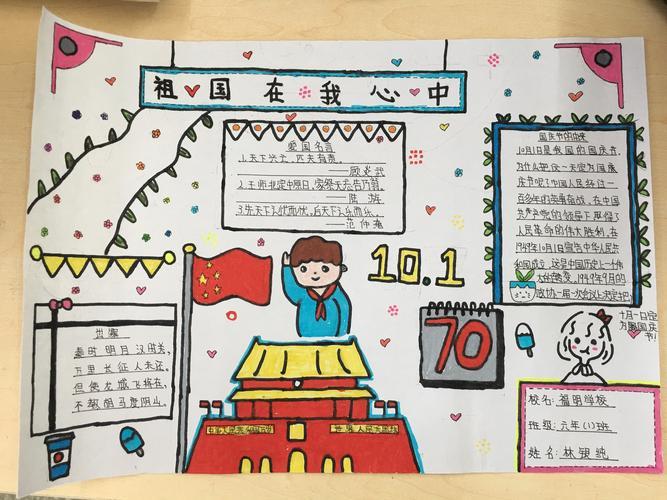 祖国在我心中
爱国名言
1.天下兴亡，匹夫有责。
——顾炎武
2.王师北定中原日，家祭无忘告乃翁。
——陆游
3.先天下之忧而忧，后天下之乐而乐。
——范仲淹
国庆节的由来
10月1日是我国的国庆节。
为什么把这一天定为国庆
庆节呢?中国人民经过一
百多年的英勇奋战，在中国
共产党的领导下，取得了
人民革命的伟大胜利，在
1949年10月1日宣告中华人民共
和国成立，这是中国历史上一个伟
大的转变。1949年9月的
政协一届一次会议上决定把
十月一日定
为国庆
节！
10.1
70
出塞
秦时明月汉时关，
万里长征人未还。
但使龙城飞将在，
不教胡马度阴山。
世界人民大团结
校名：福明学校
班级：六年(1)班
姓名：林银纯